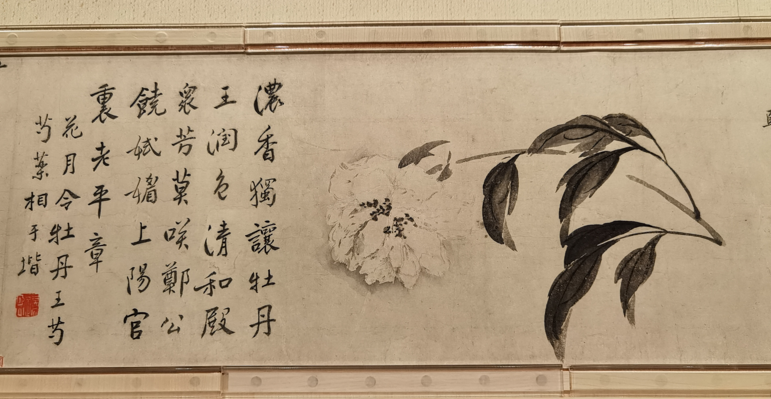 濃香獨讓牡丹
王潤色清和殿
衆芳莫咲鄭公
饒娬媚上陽宮
裏老平章
花月令牡丹王芍
芍藥相于堦